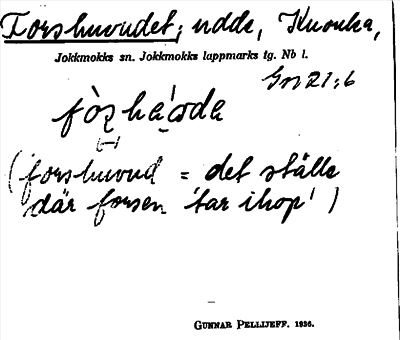 Forshuvudet; udde, Knouka,
Jokkmokks sn. Jokkmokks lappmarks tg. Nb l.
Gn 21:6
(forshuvud = det ställe
där forsen 'tar ihop')
GUNNAR PELLIJEFF. 1936.